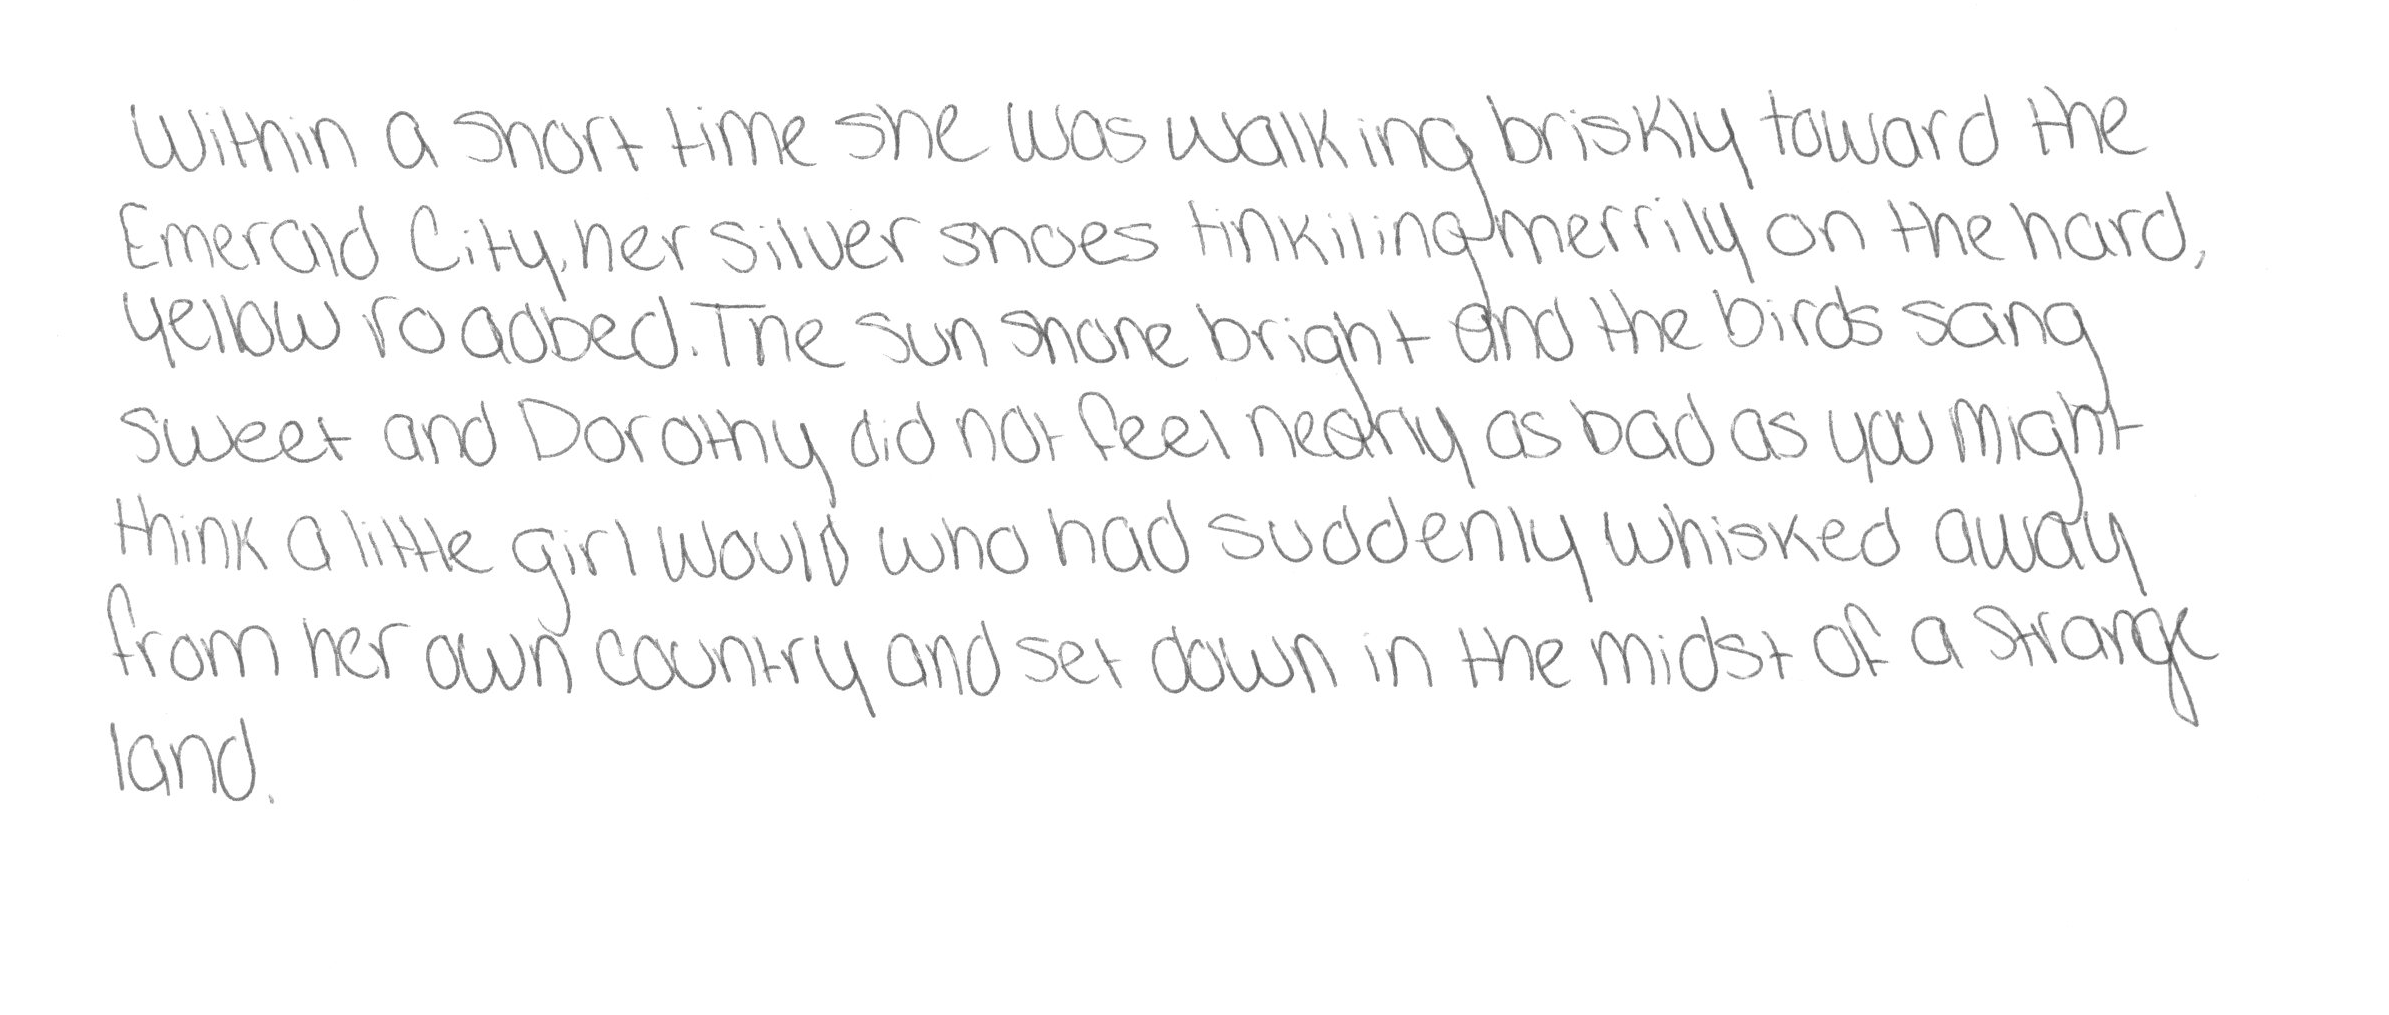 Within a short time she was walking briskly toward the
Emerald City, her silver shoes tinkiling merrily on the hard,
yellow roadbed. The sun shone bright and the birds sang
sweet and Dorothy did not feel nearly as bad as you might
think a little girl would who had suddenly whisked away
from her own country and set down in the midst of a strange
land.